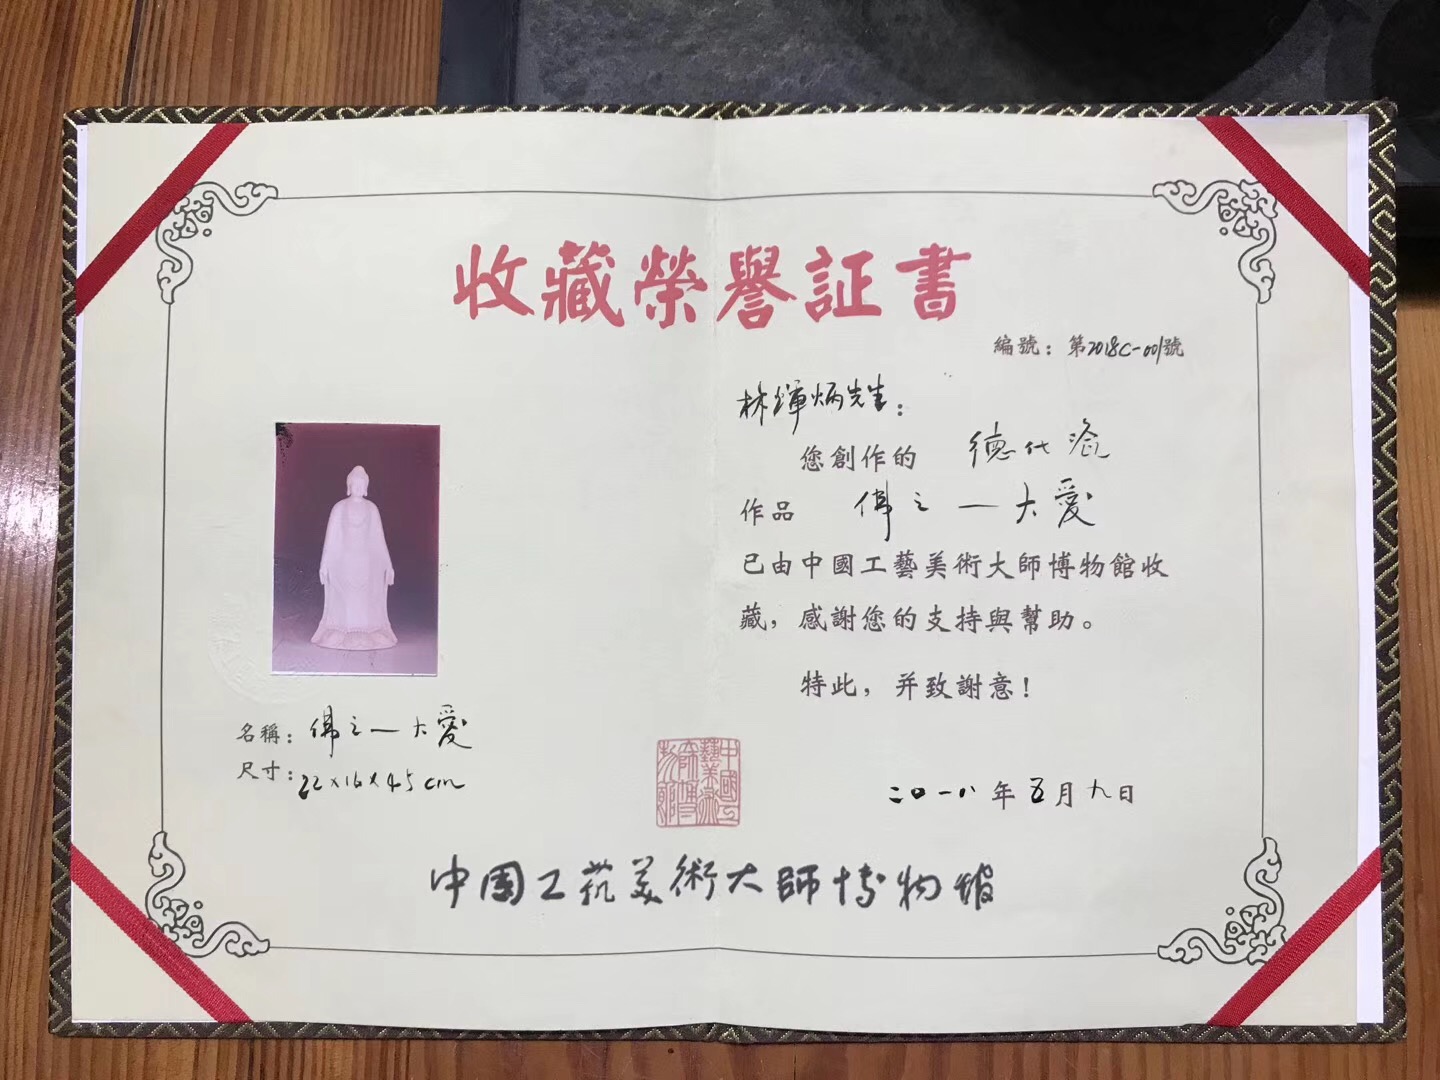 收藏榮譽証書
編號：第2018C-001號
林渾炳先生：
您創作的 德化瓷
作品 佛之一大愛
已由中國工藝美術大師博物館收
藏，感謝您的支持與幫助。
特此，并致謝意！
名稱：佛之一大愛
尺寸：22x16x45cm
中國工藝美術大師博物館
二〇一八年五月九日
中國工藝美術大師博物館